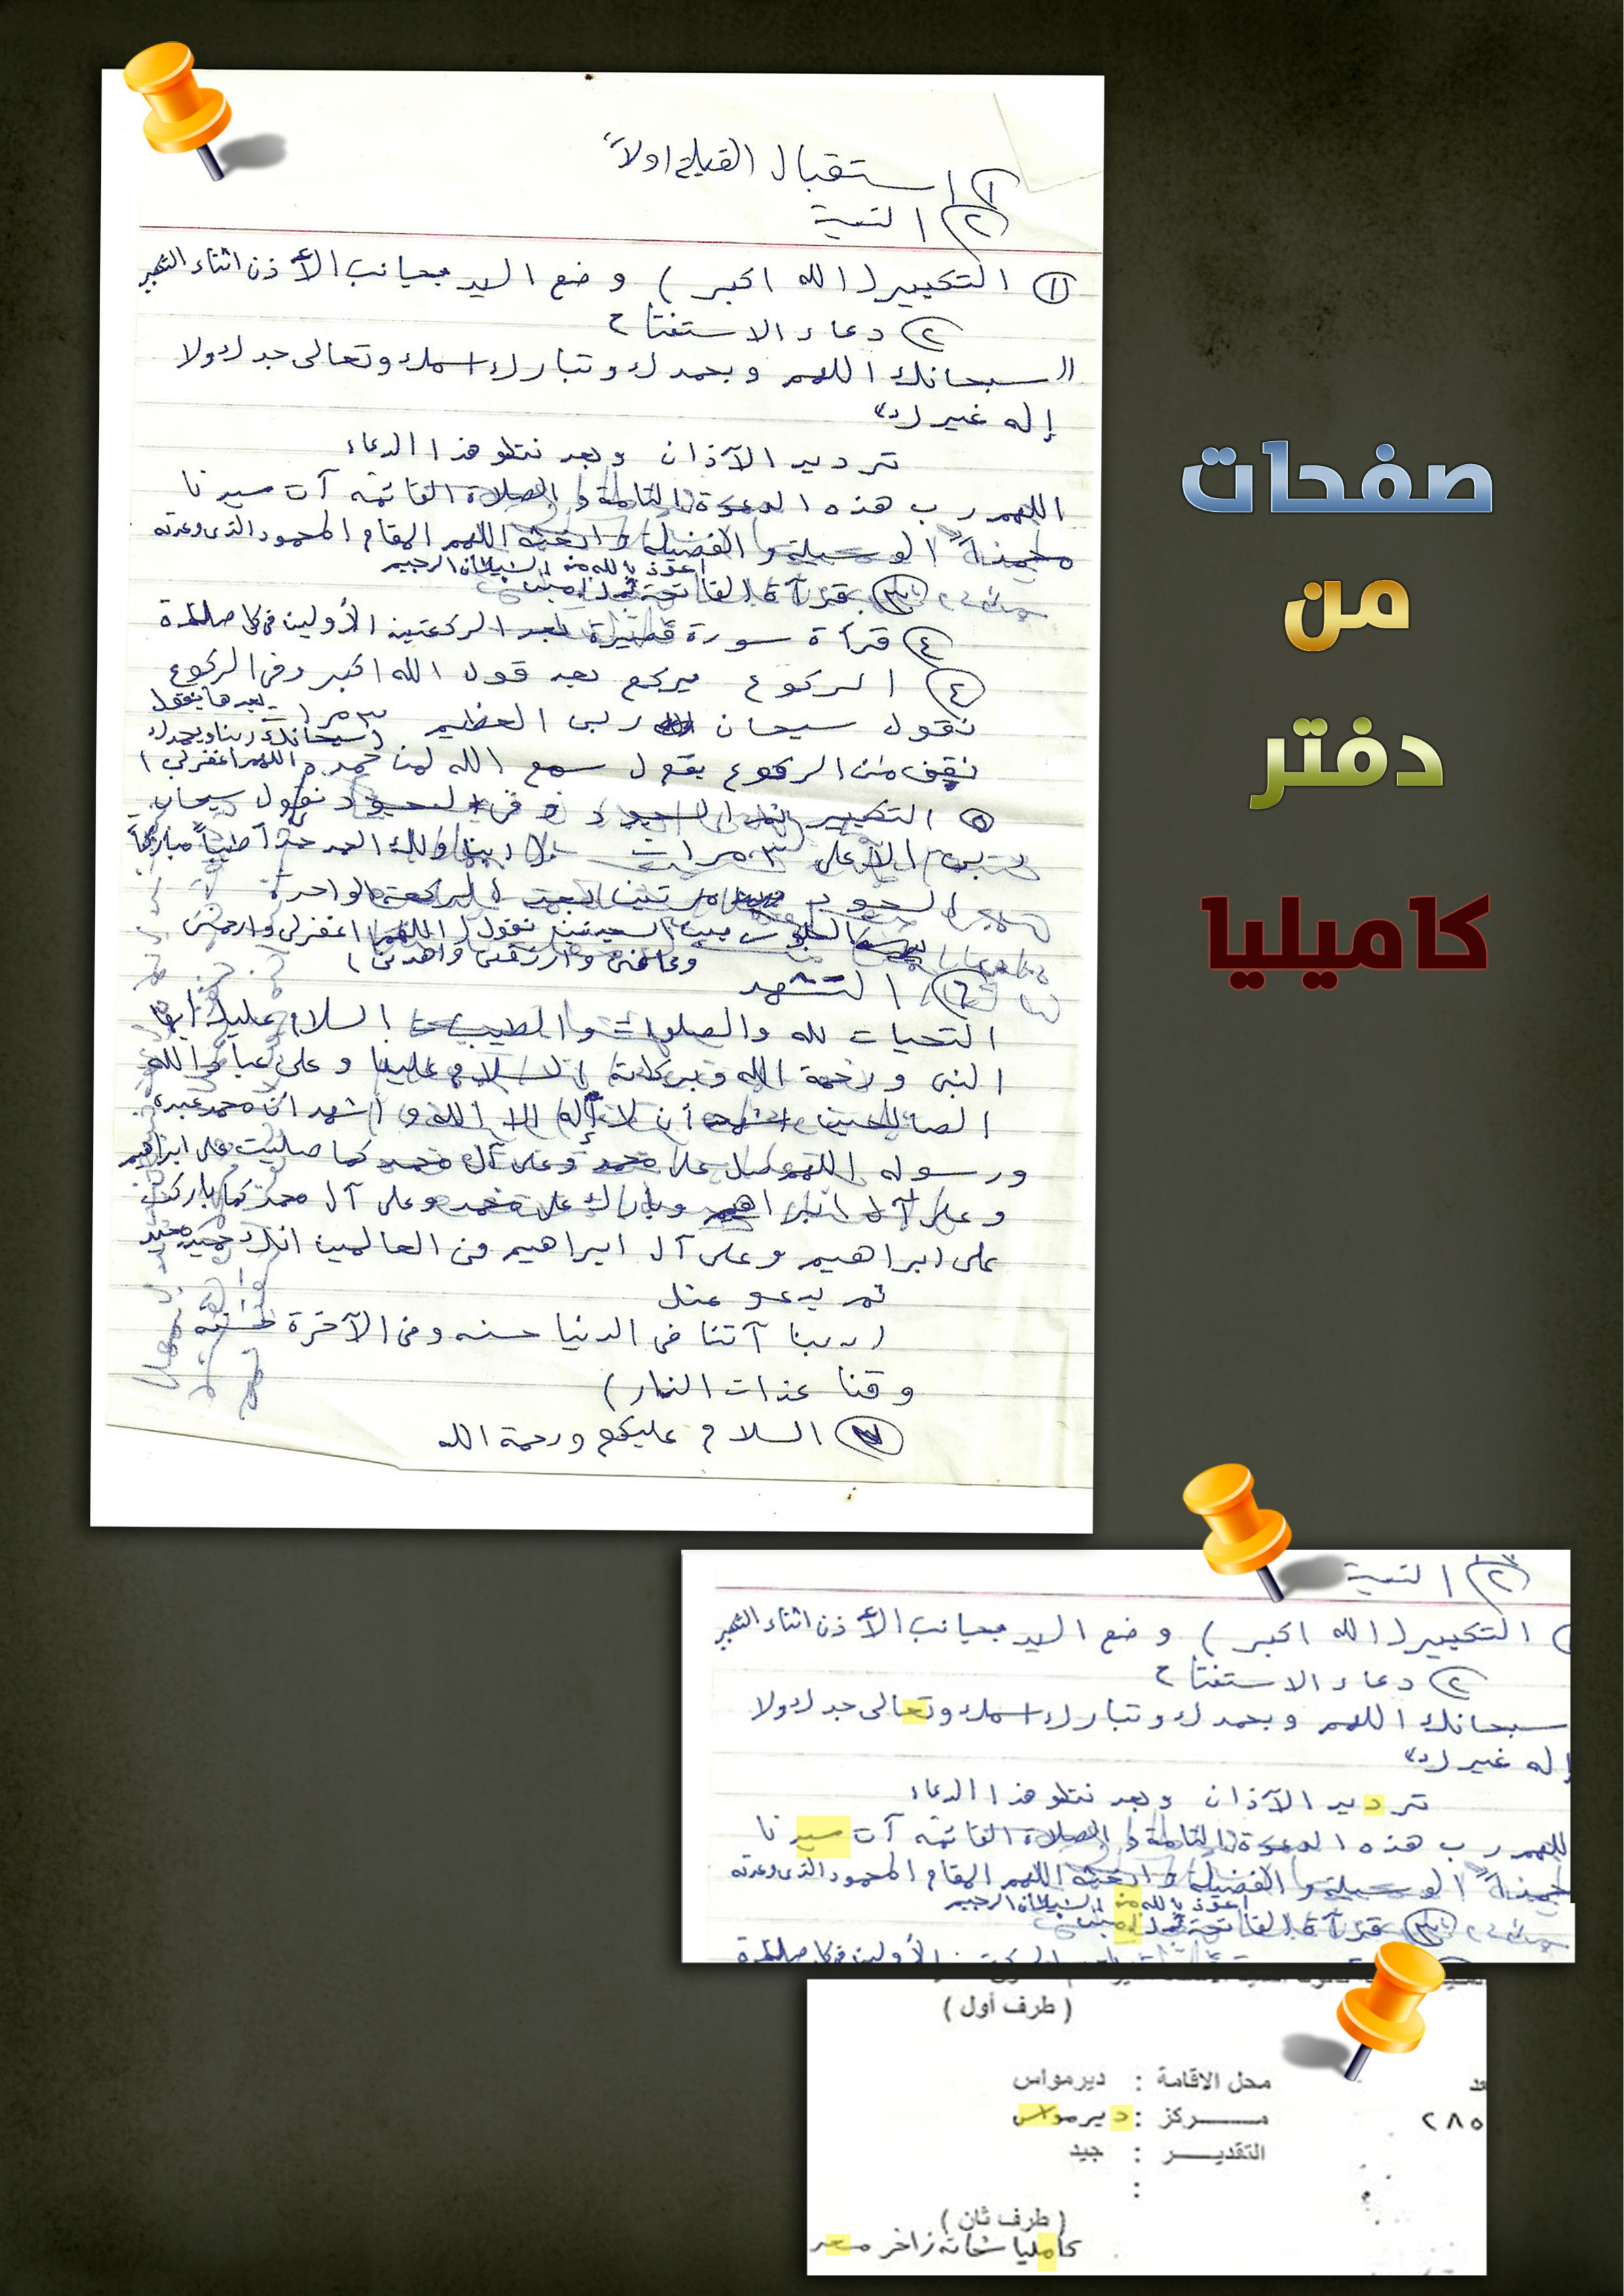 صفحات
من
دفتر
كاميليا
١ استقبال القبلة اولاً
٢ النية
١ التكبير (الله اكبر) وضع اليد بجانب الأذن اثناء التكبير
٢ دعاء الاستفتاح
"سبحانك اللهم وبحمدك وتبارك اسمك وتعالى جدك ولا
إله غيرك"
ترديد الآذان وبعد نتلو هذا الدعاء
اللهم رب هذه الدعوة التامة والصلاة القائمة آت سيدنا
محمداً الوسيلة والفضيلة وابعثه اللهم المقام المحمود الذى وعدته
اعوذ بالله من الشيطان الرجيم
٣ قرآة الفاتحة ثم امين
٤ قرأة سورة قصيرة بعد الركعتين الأولين فى كل صلاة
٤ الركوع يركع بعد قول الله اكبر وفى الركوع
نقول سبحان ربى العظيم ٣ مرا بعدها نقول
(سبحانك ربنا وبحمدك
نقف من الركوع بقول سمع الله لمن حمده اللهم اغفرلى)
٥ التكبير ثم السجود و فى السجود نقول سبحان
ربى الأعلى ٣ مرات ربنا ولك الحمد حمداً طيباً مباركاً
السجود مرتين للركعة الواحدة
بين السجدتين نقول (اللهم اغفرلى وارحمنى
وعافنى وارزقنى واهدنى)
٦ التشهد
التحيات لله والصلوات والطيبات السلام عليك أيها
النبى ورحمة الله وبركاته السلام علينا وعلى عباد الله
الصالحين اشهد أن لا إله إلا الله و أشهد أن محمد عبده
ورسوله اللهم صل على محمد وعلى آل محمد كما صليت على ابراهيم
وعلى آل ابراهيم وبارك على محمد وعلى آل محمد كما باركت
على ابراهيم وعلى آل ابراهيم فى العالمين انك حميد مجيد
ثم يدعو مثل
(ربنا آتنا فى الدنيا حسنه وفى الآخرة حسنه
وقنا عذات النار)
٧ السلام عليكم ورحمة الله
٢ النية
التكبير (الله اكبر) وضع اليد بجانب الأذن اثناء التكبير
٢ دعاء الاستفتاح
سبحانك اللهم وبحمدك وتبارك اسمك وتعالى جدك ولا
إله غيرك"
ترديد الآذان وبعد نتلو هذا الدعاء
اللهم رب هذه الدعوة التامة والصلاة القائمة آت سيدنا
محمداً الوسيلة والفضيلة وابعثه اللهم المقام المحمود الذى وعدته
اعوذ بالله من الشيطان الرجيم
٣ قرآة الفاتحة ثم امين
( طرف أول )
محل الاقامة : ديرمواس
مـركز : ديرمواس
٢٨٥
التقديـر : جيد
:
( طرف ثان )
كامليا شحاته زاخر